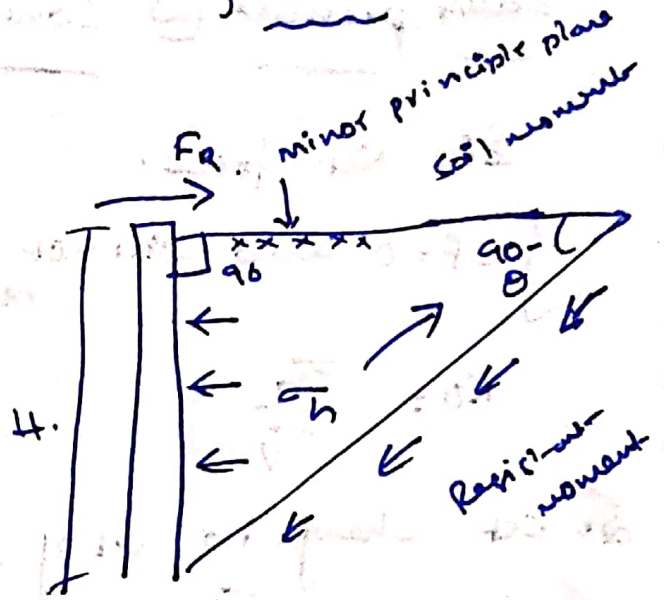 minor principle plane
FR.
Soil moment
90
90-
θ
σh
H.
Resist-ant
moment